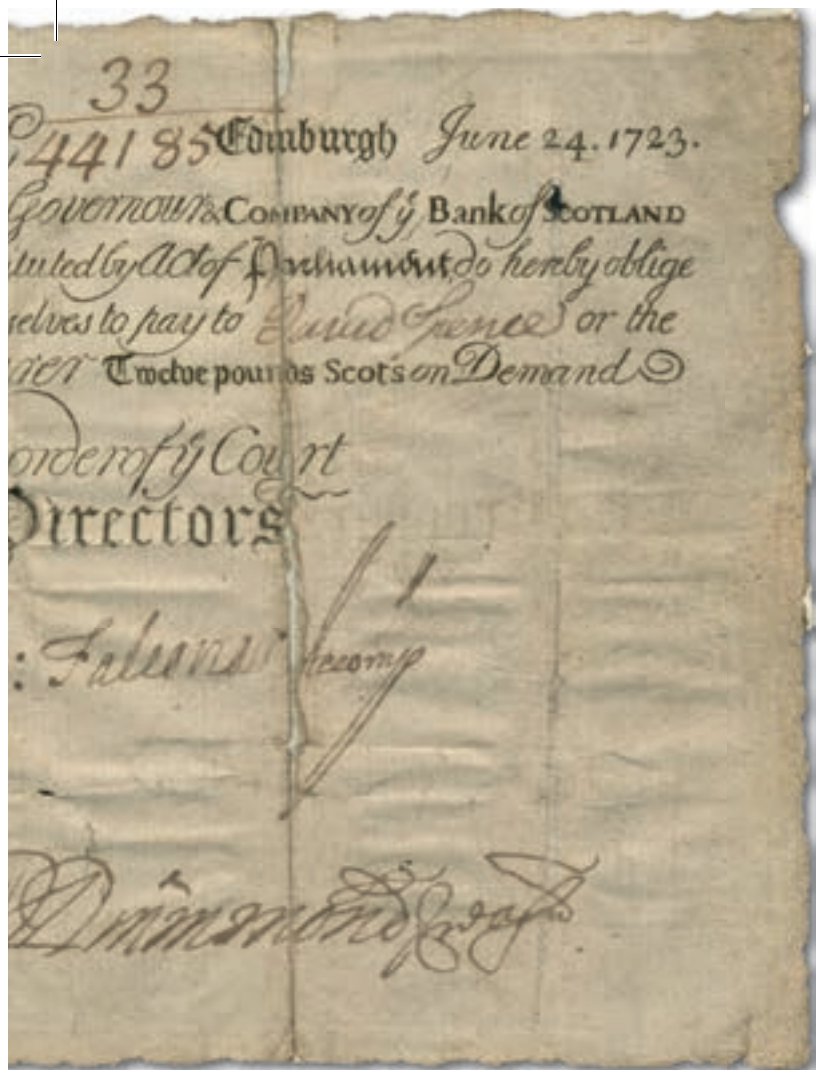 33
44185 Edinburgh June 24. 1723.
Governour & COMPANY of ÿ Bank of SCOTLAND
tuted by Act of Parliament, do hereby oblige
selves to pay to David Spence or the
arer Twelve pounds Scots on Demand
order of ÿ Court
Directors
: Falconar
Drummond